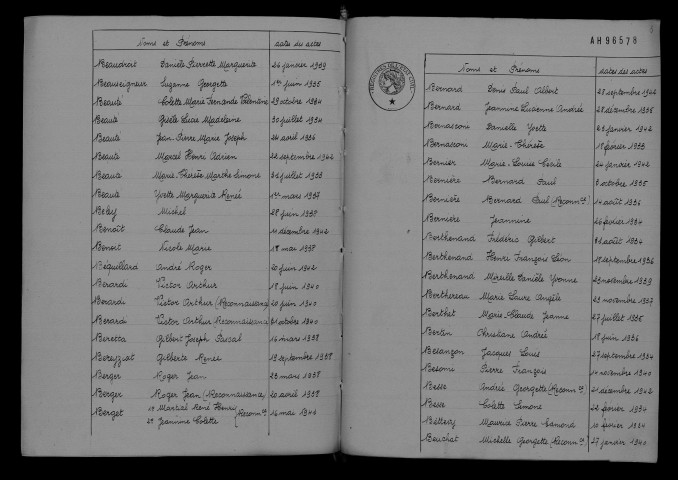 Noms et Prénoms dates des actes
Beaudroit Danièle Pierrette Marguerite 24 janvier 1939
Beauseigneur Suzanne Georgette 1er juin 1935
Beauté Colette Marie Fernande Valentine 29 octobre 1934
Beauté Gisèle Lucie Madeleine 30 juillet 1934
Beauté Jean Pierre Marie Joseph 24 avril 1936
Beauté Marcel Henri Adrien 22 septembre 1942
Beauté Marie Thérèse Marthe Simone juillet 1938
Beauté Yvette Marguerite Renée 1er mars 1937
Beley Michel 28 juin 1938
Benoît Claude Jean 11 décembre 1942
Benoit Nicole Marie 18 mai 1938
Béquillard André Roger 20 juin 1942
Berardi Victor Arthur 18 juin 1940
Berardi Victor Arthur (Reconnaissance) 20 juin 1940
Berardi Victor Arthur Reconnaissance 31 octobre 1940
Beretta Gilbert Joseph Pascal 16 mars 1938
Gilberte Renée 19 septembre 1938
Berger Roger Jean 23 mars 1938
Berger Roger Jean (Reconnaissance) 20 avril 1938
Berget 1° Martial René Henri
2° Jeannine Colette (Reconnce 16 mai 1944
AH96578
Noms et Prénoms dates des actes
Bernard Denis Paul Albert 23 septembre 1942
Bernard Jeannine Lucienne Andrée 28 décembre 1936
Bernasconi Danielle Yvette 23 janvier 1942
Bernasconi Marie-Thérèse 18 février 1938
Bernier Marie-Louise Cécile 24 janvier 1942
Bernière Bernard Paul 8 octobre 1935
Bernière Bernard Paul (Reconnce) 14 août 1936
Bernière Jeannine 26 février 1934
Berthenand Frédéric Gilbert août 1934
Berthenand Henri François Léon 18 septembre 1936
Berthenand Mireille Danièle Yvonne 23 novembre 1939
Berthereau Marie Laure Angèle 23 novembre 1937
Berthet Marie-Claude Jeanne 27 juillet 1936
Bertin Christiane Andrée 18 juin 1936
Besançon Jacques Louis 27 septembre 1934
Besomi Pierre François 14 novembre 1940
Besse Andrée Georgette (Reconnce) 21 décembre 1942
Besse Colette Simone 22 février 1934
Maurice Pierre Edmond 10 février 1934
Beuchat Michelle Georgette (Reconnce) 27 janvier 1940